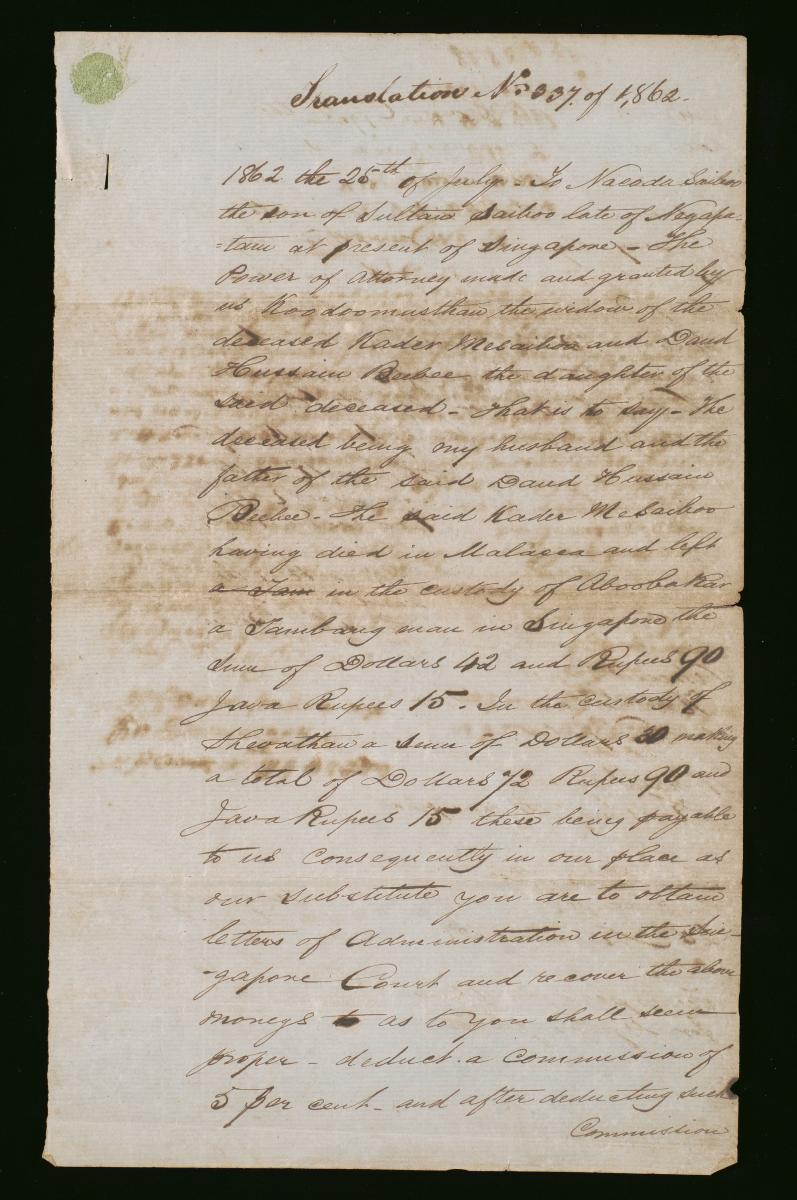 Translation No. 337. of 1,862.
1862 the 25th of July - To Nacoda Saiboo
the son of Sultan Saiboo late of Negapa-
-tam at present of Singapore - The
Power of Attorney made and granted by
us Koodoomusthan the widow of the
deceased Kader Mesaiboo and Daud
Hussain Beebee the daughter of the
said deceased - that is to say - The
deceased being my husband and the
father of the said Daud Hussain
Beebee - The said Kader Mesaiboo
having died in Malacca and left
a Tam in the custody of Aboobakar
a Tambang man in Singapore the
Sum of Dollars 42 and Rupees 90
Java Rupees 15. In the custody of
Shevathan a sum of Dollars 30 making
a total of Dollars 72 Rupees 90 and
Java Rupees 15 these being payable
to us consequently in our place as
our substitute you are to obtain
letters of Administration in the Sin-
-gapore Court and recover the above
moneys to as to you shall seem
proper - deduct a commission of
5 per cent - and after deducting such
Commission